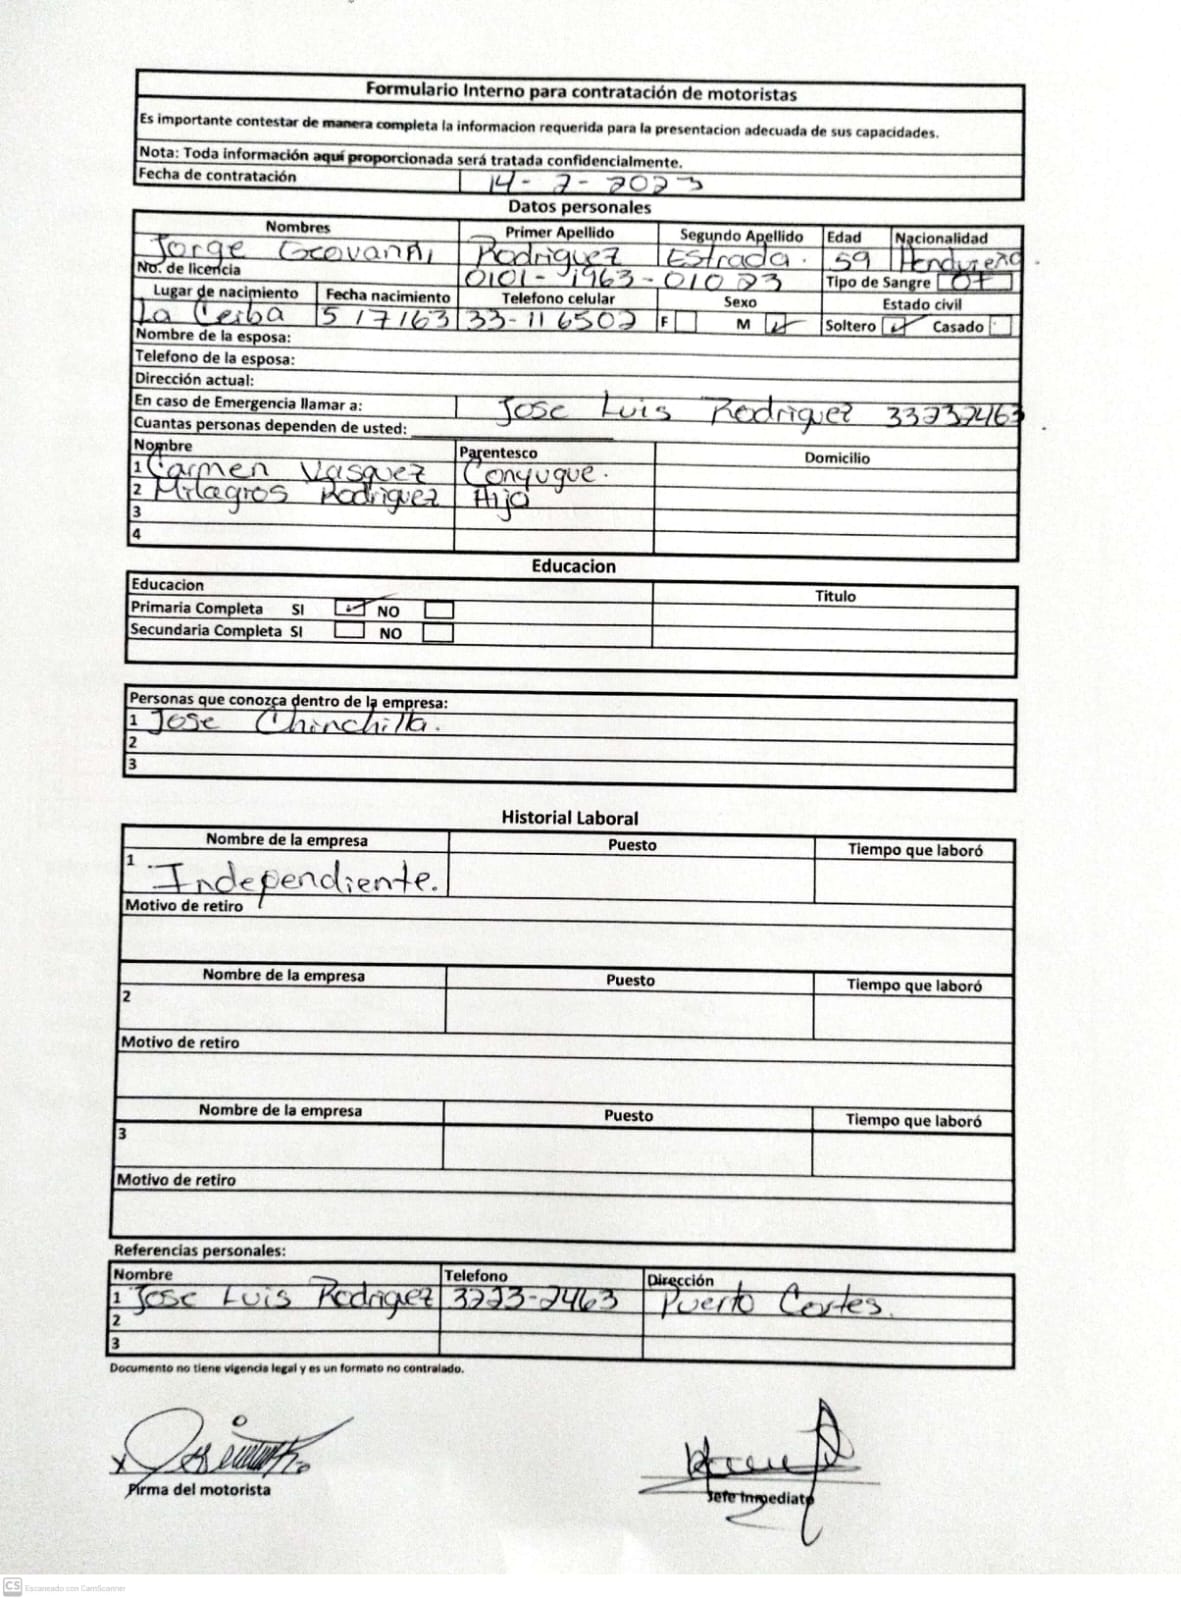 Formulario Interno para contratación de motoristas
Es importante contestar de manera completa la informacion requerida para la presentacion adecuada de sus capacidades.
Nota: Toda información aquí proporcionada será tratada confidencialmente.
Fecha de contratación 14-2-2023
Datos personales
Nombres Primer Apellido Segundo Apellido Edad Nacionalidad
Jorge Geovanni Rodriguez Estrada. 59 Hondureño.
No. de licencia 0101-1963-01023 Tipo de Sangre O+
Lugar de nacimiento Fecha nacimiento Telefono celular Sexo Estado civil
La Ceiba 5/7/63 33-116502 F M Soltero Casado
Nombre de la esposa:
Telefono de la esposa:
Dirección actual:
En caso de Emergencia llamar a: Jose Luis Rodriguez 33232463
Cuantas personas dependen de usted:
Nombre Parentesco Domicilio
1 Carmen Vasquez Conyugue.
2 Milagros Rodriguez Hija
3
4
Educacion
Educacion Titulo
Primaria Completa SI NO
Secundaria Completa SI NO
Personas que conozca dentro de la empresa:
1 Jose Chinchilla.
2
3
Historial Laboral
Nombre de la empresa Puesto Tiempo que laboró
1 Independiente.
Motivo de retiro
Nombre de la empresa Puesto Tiempo que laboró
2
Motivo de retiro
Nombre de la empresa Puesto Tiempo que laboró
3
Motivo de retiro
Referencias personales:
Nombre Telefono Dirección
1 Jose Luis Rodriguez 3323-2463 Puerto Cortes.
2
3
Documento no tiene vigencia legal y es un formato no contralado.
X
Firma del motorista Jefe Inmediato
CS Escaneado con CamScanner